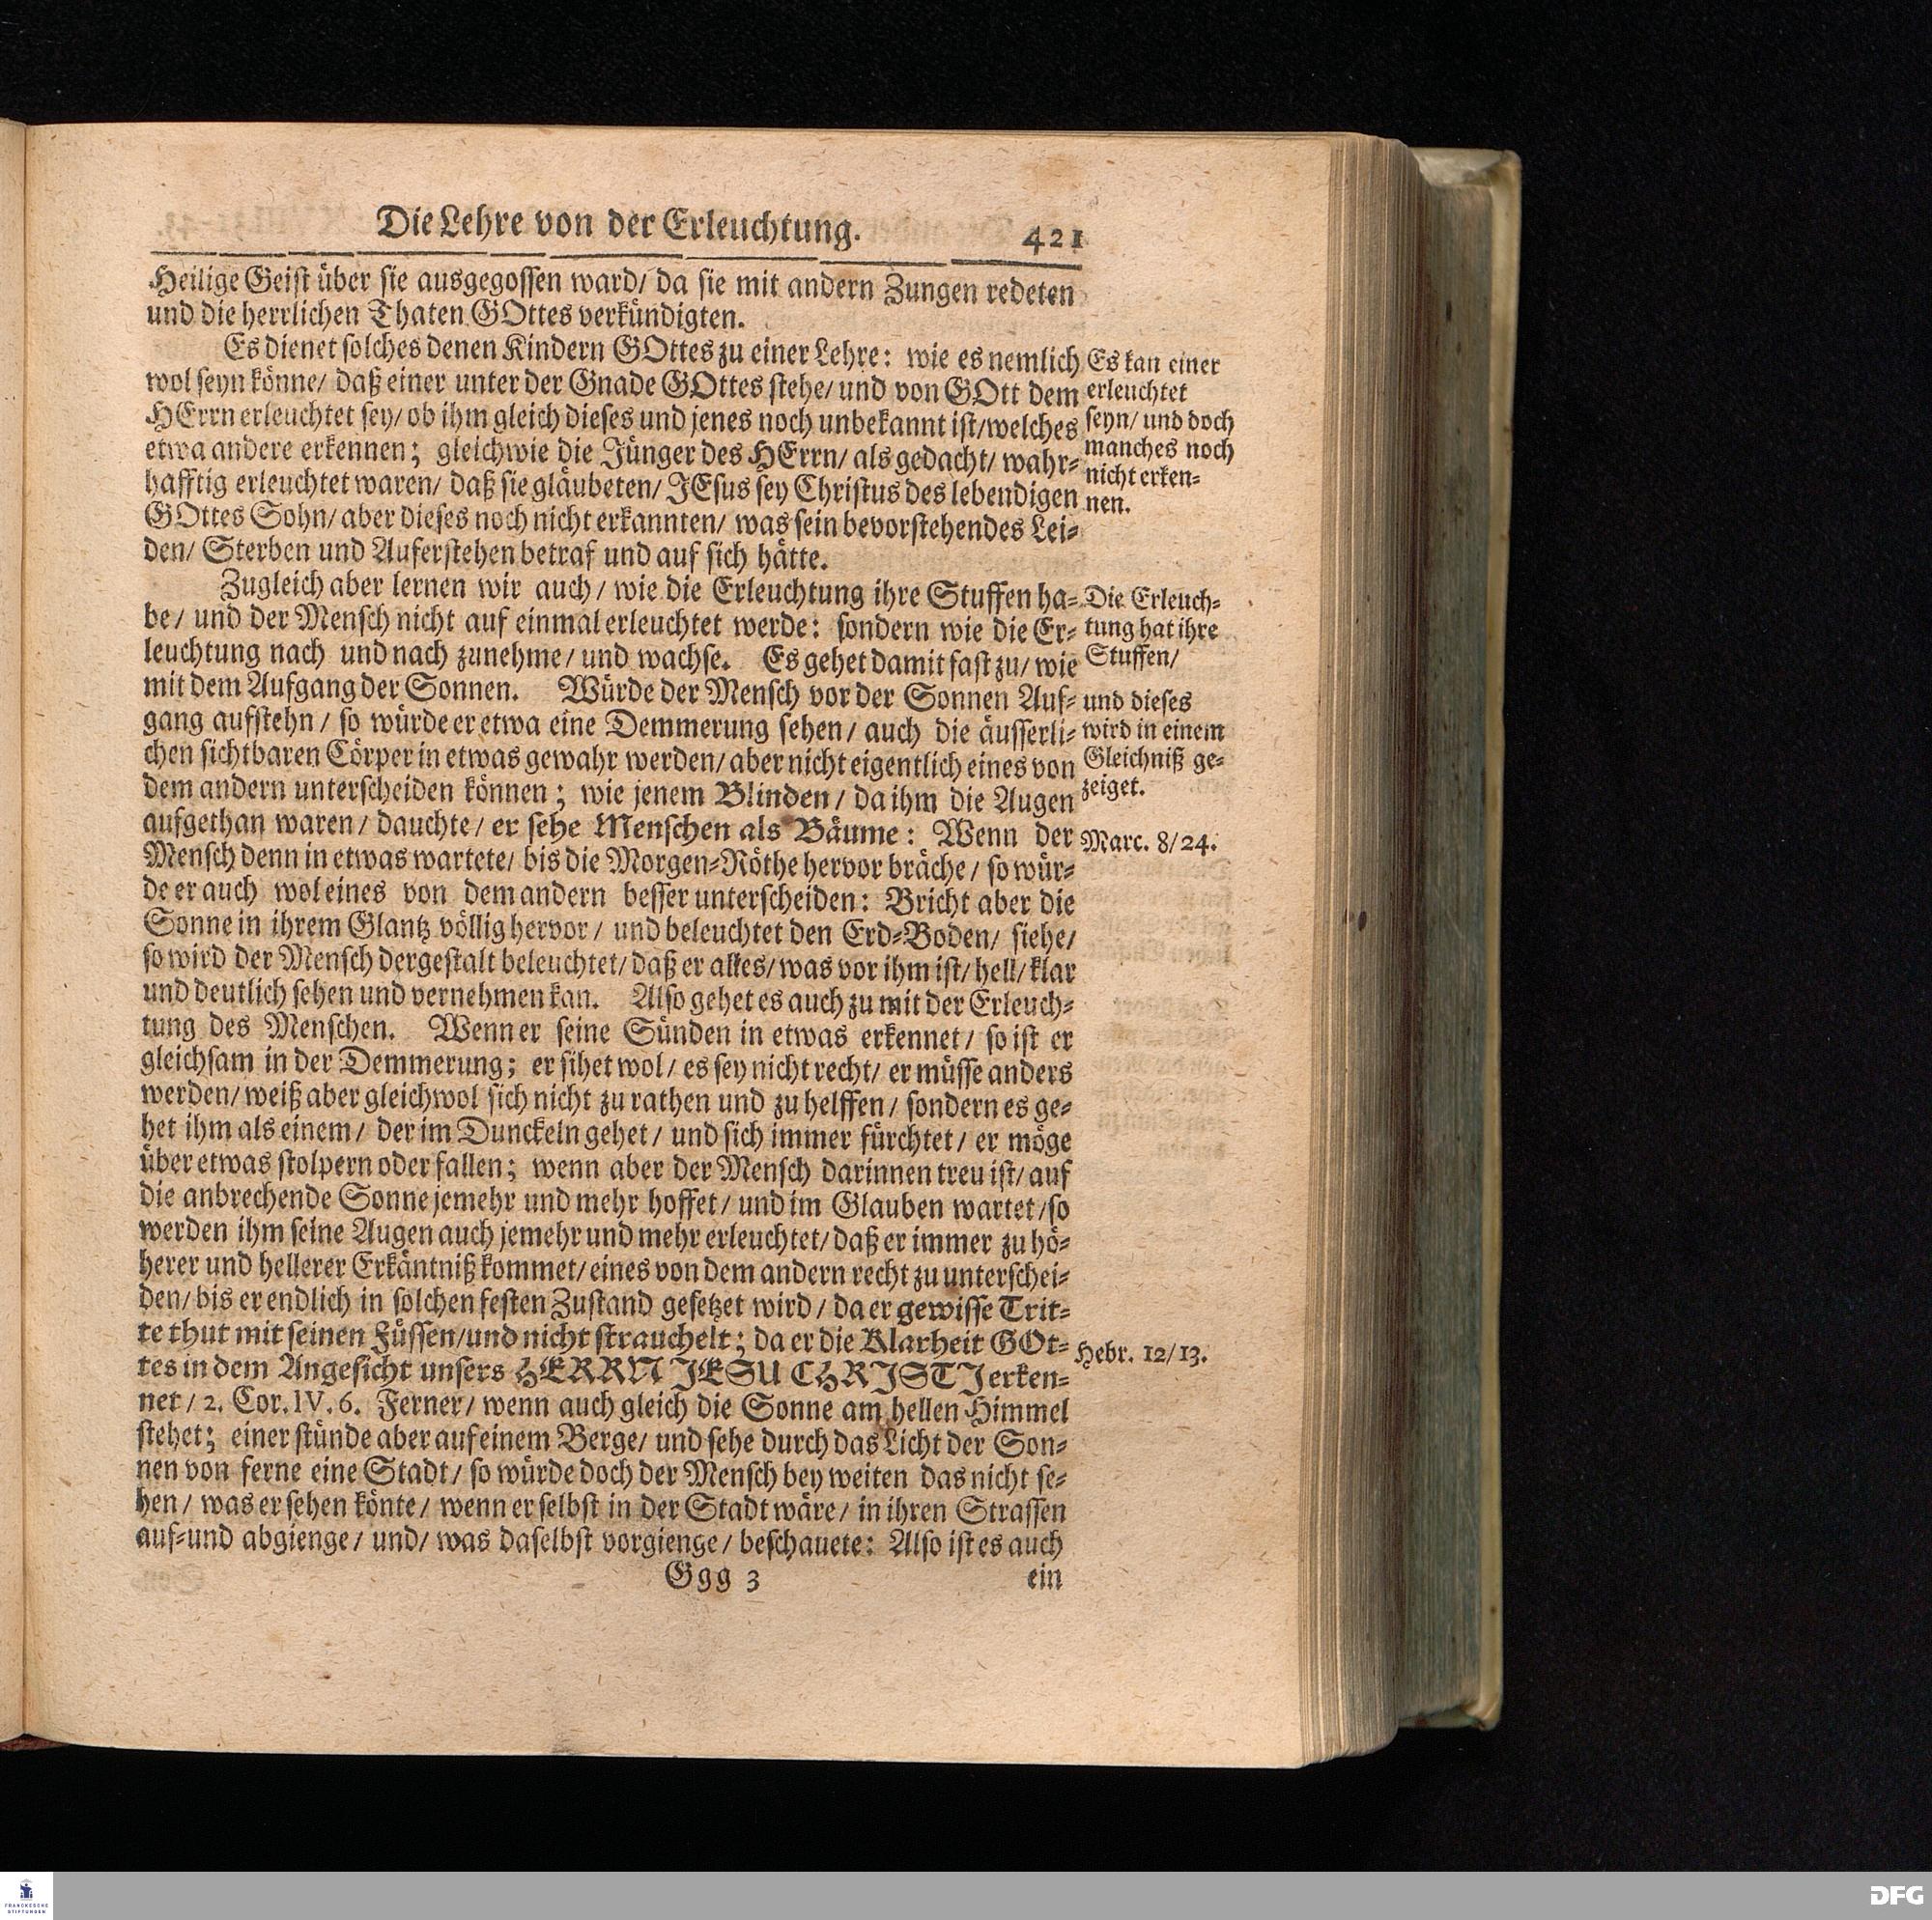 Die Lehre von der Erleuchtung. 421
Heilige Geist über sie ausgegossen ward/ da sie mit andern Zungen redeten
und die herrlichen Thaten GOttes verkündigten.
Es dienet solches denen Kindern GOttes zu einer Lehre: wie es nemlich
wol seyn könne/ daß einer unter der Gnade GOttes stehe/ und von GOtt dem
HErrn erleuchtet sey/ ob ihm gleich dieses und jenes noch unbekannt ist/welches
etwa andere erkennen; gleichwie die Jünger des HErrn/ als gedacht/ wahr-
hafftig erleuchtet waren/ daß sie gläubeten/ JEsus sey Christus des lebendigen
GOttes Sohn/ aber dieses noch nicht erkannten/ was sein bevorstehendes Lei-
den/ Sterben und Auferstehen betraf und auf sich hätte.
Es kan einer
erleuchtet
seyn/ und doch
manches noch
nicht erken-
nen.
Zugleich aber lernen wir auch/ wie die Erleuchtung ihre Stuffen ha-
be/ und der Mensch nicht auf einmal erleuchtet werde: sondern wie die Er-
leuchtung nach und nach zunehme/ und wachse. Es gehet damit fast zu/ wie
mit dem Aufgang der Sonnen. Würde der Mensch vor der Sonnen Auf-
gang aufstehn/ so würde er etwa eine Demmerung sehen/ auch die äusserli-
chen sichtbaren Cörper in etwas gewahr werden/ aber nicht eigentlich eines von
dem andern unterscheiden können; wie jenem Blinden/ da ihm die Augen
aufgethan waren/ dauchte/ er sehe Menschen als Bäume: Wenn der
Mensch denn in etwas wartete/ bis die Morgen-Röthe hervor bräche/ so wür-
de er auch wol eines von dem andern besser unterscheiden: Bricht aber die
Sonne in ihrem Glantz völlig hervor/ und beleuchtet den Erd-Boden/ siehe/
so wird der Mensch dergestalt beleuchtet/ daß er alles/ was vor ihm ist/ hell/ klar
und deutlich sehen und vernehmen kan. Also gehet es auch zu mit der Erleuch-
tung des Menschen. Wenn er seine Sünden in etwas erkennet/ so ist er
gleichsam in der Demmerung; er sihet wol/ es sey nicht recht/ er müsse anders
werden/ weiß aber gleichwol sich nicht zu rathen und zu helffen/ sondern es ge-
het ihm als einem/ der im Dunckeln gehet/ und sich immer fürchtet/ er möge
über etwas stolpern oder fallen; wenn aber der Mensch darinnen treu ist/ auf
die anbrechende Sonne jemehr und mehr hoffet/ und im Glauben wartet/so
werden ihm seine Augen auch jemehr und mehr erleuchtet/ daß er immer zu hö-
herer und hellerer Erkäntniß kommet/ eines von dem andern recht zu unterschei-
den/ bis er endlich in solchen festen Zustand gesetzet wird/ da er gewisse Trit-
te thut mit seinen Füssen/und nicht strauchelt; da er die Klarheit GOt-
tes in dem Angesicht unsers HERRN JESU CHRISTJ erken-
net/ 2. Cor. IV. 6. Ferner/ wenn auch gleich die Sonne am hellen Himmel
stehet; einer stünde aber auf einem Berge/ und sehe durch das Licht der Son-
nen von ferne eine Stadt/ so würde doch der Mensch bey weiten das nicht se-
hen/ was er sehen könte/ wenn er selbst in der Stadt wäre/ in ihren Strassen
auf-und abgienge/ und/ was daselbst vorgienge/ beschauete: Also ist es auch
Die Erleuch-
tung hat ihre
Stuffen/
und dieses
wird in einem
Gleichniß ge-
zeiget.
Marc. 8/24.
Hebr. 12/13.
Ggg 3 ein
FRANCKESCHE
STIFTUNGEN
DFG